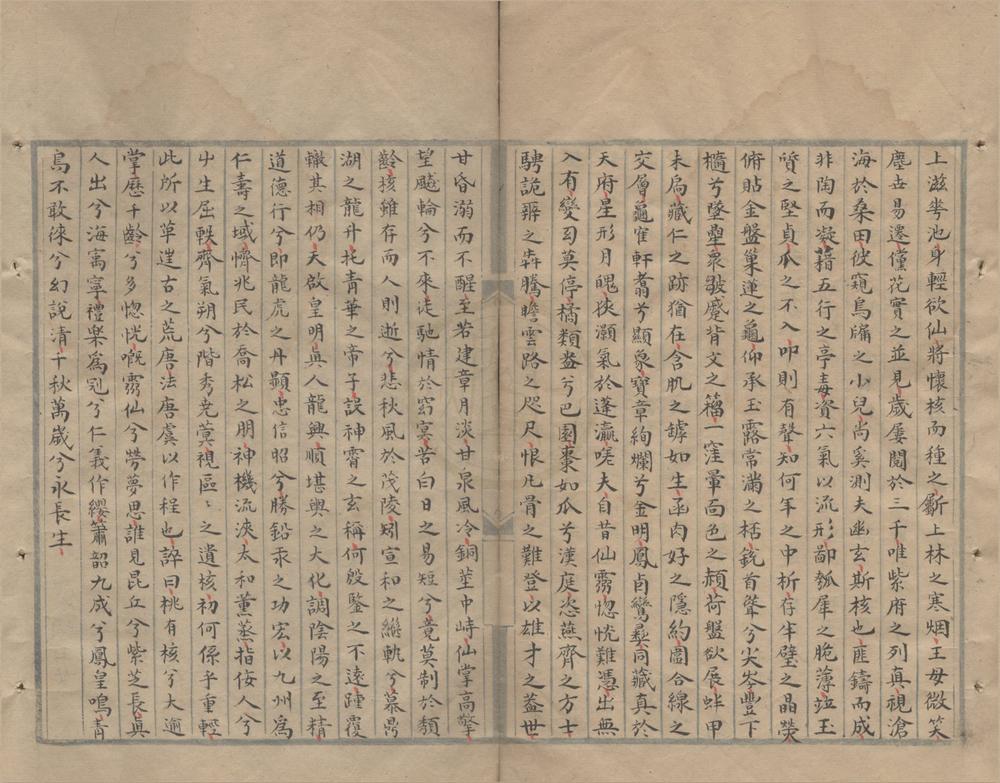 上滋咢池身輕欲仙將懷核而種之斸上林之寒烟王母微笑
塵世易遷僅花實之並見歲屢閱於三千唯紫府之列真視滄
海於桑田彼窺鳥牖之小兒尚奚測夫幽玄斯核也匪鑄而成
非陶而凝藉五行之亭毒資六氣以流形鄙瓠犀之脆薄並玉
質之堅貞爪之不入叩則有聲知何年之中析存半璧之晶熒
俯貼金盤巢蓮之龜仰承玉露常滿之桮銳首犖兮尖岑豐下
橢兮墮壘衆皺蹙背文之籀一窪暈面色之頳荷盤欲展蚌甲
未扃藏仁之跡猶在含肌之罅如生函肉好之隱約闔合線之
交層龜寉軒翥兮顯象寶章絢爛兮金明鳳卣鸞彝同藏真於
天府星形月魄俠灝氣於蓬瀛嗟夫自昔仙靈惚恍難憑出無
入有變幻莫停橘類盎兮巴園棗如瓜兮漢庭恣燕齊之方士
騁詭辭之犇騰瞻雲路之咫尺恨凡骨之難登以雄才之葢世
甘昏溺而不醒至若建章月淡甘泉風冷銅莖中峙仙掌高擎
望飈輪兮不來徒馳情於窈冥苦白日之易短兮竟莫制於頹
齡核雖存而人則逝兮悲秋風於茂陵矧宣和之繼軌兮慕鼎
湖之龍升托青華之帝子誤神霄之玄稱何殷鑒之不遠踵覆
轍其相仍天啟皇明真人龍興順堪輿之大化調陰陽之至精
道德行兮即龍虎之丹顯忠信昭兮勝鉛汞之功宏以九州為
仁壽之域儕兆民於喬松之朋神機流浹太和薰蒸指佞人兮
屮生屈軼齊氣朔兮階秀堯蓂視區區之遺核初何係乎重輕
此所以革邃古之荒唐法唐虞以作程也誶曰桃有核兮大逾
掌歷千齡兮多惚恍嘅靈仙兮勞夢思誰見昆丘兮紫芝長真
人出兮海㝢寧禮樂為冠兮仁義作纓簫韶九成兮鳳皇鳴青
鳥不敢徠兮幻說清千秋萬歲兮永長生